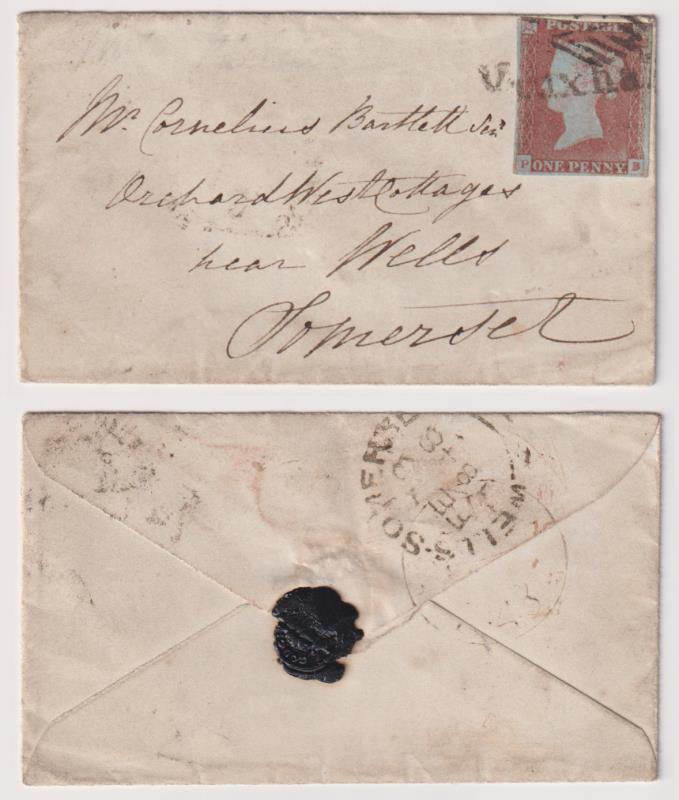 POSTAGE
Vauxha
P ONE PENNY B
Mr. Cornelius Bartlett Senr
Orchard West Cottages
near Wells
Somerset
WELLS-SOMERSE